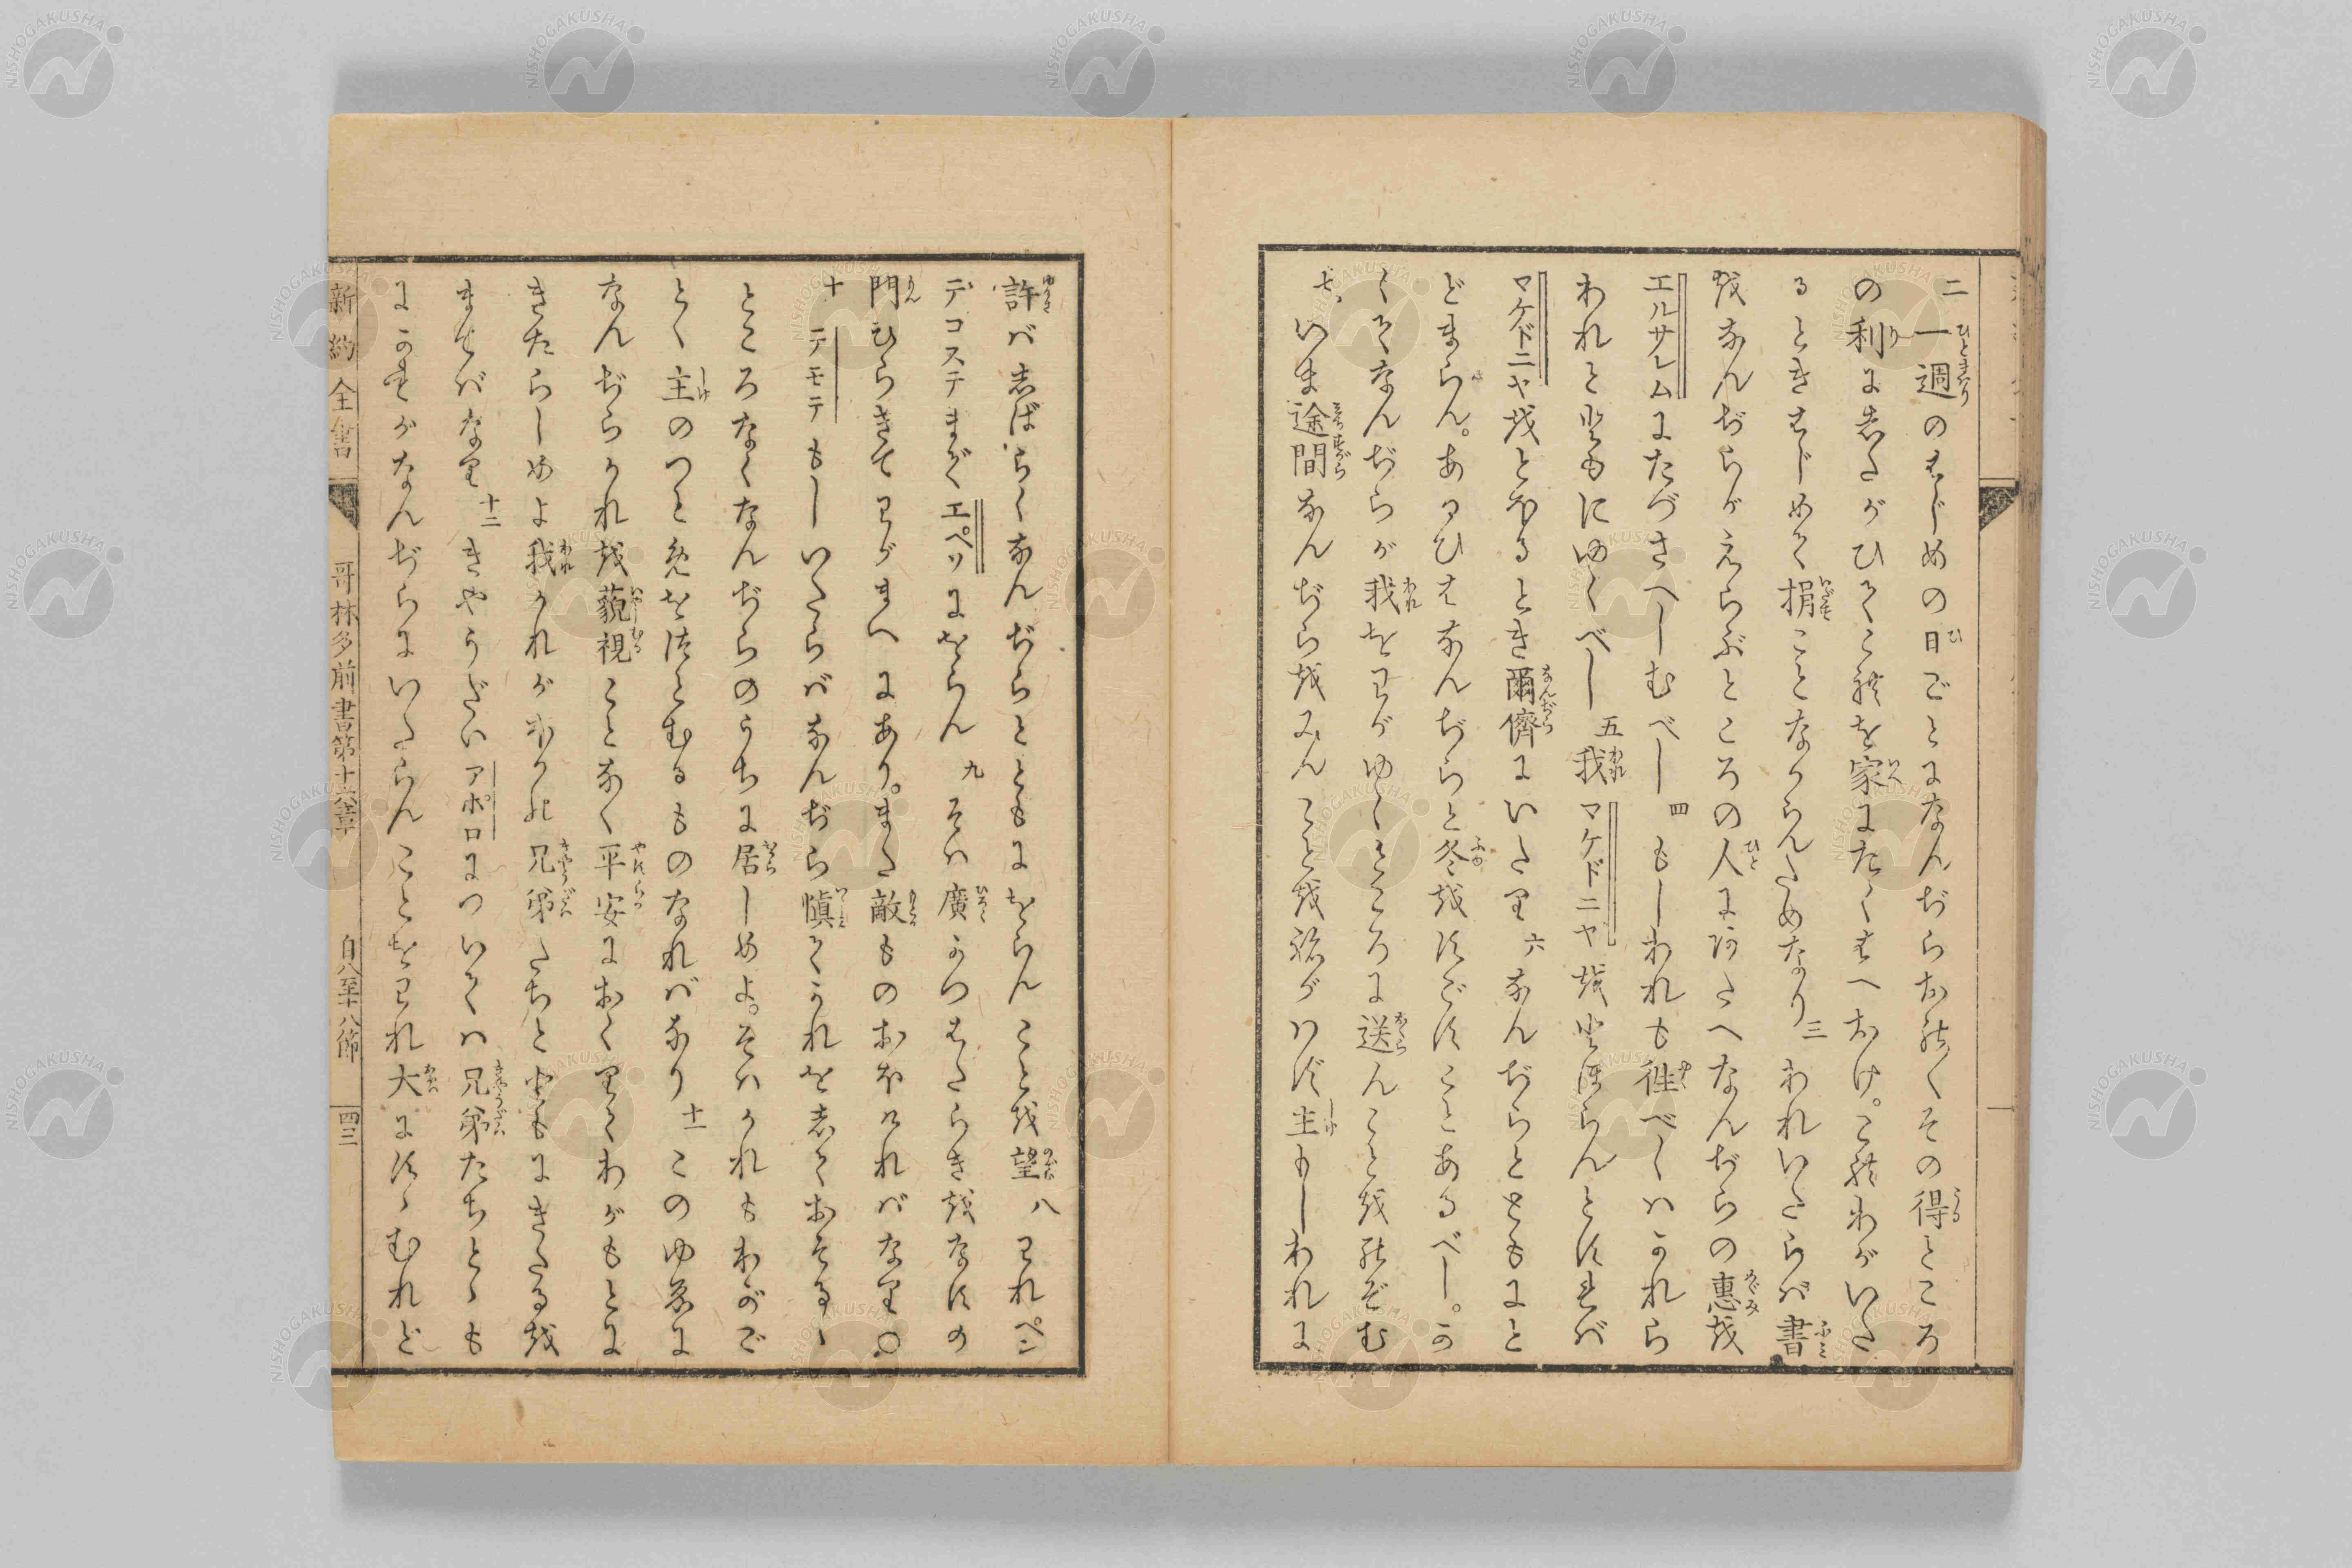 二 一週のはじめの日ごとになんぢらおのくその得ところ
の利にしたがひてこれを家にたくはへおけ。これわがいた
るときはじめて捐ことなからんためなり 三 われいたらば書
をなんぢらがえらぶところの人にあたへなんぢらの惠を
エルサレムにたづさへしむべし 四 もしわれも徃べくはかれら
われとともにゆくべし 五 我マケドニヤをとほらんとすれば
マケドニヤをとほるとき爾儕にいたり 六 なんぢらとともにと
どまらん。あるひはなんぢらと冬をすごすことあるべし。か
くてなんぢらが我をわがゆくところに送んことをのぞむ
七 いま途間なんぢらをみんことをねがはず主もしわれに
許ばしばらくなんぢらとともにをらんことを望 八 われペン
デコステまでエペソにをらん 九 そは廣かつはたらきをなすの
門ひらきてわがまへにあり。また敵ものおほければなり○
十 テモテもしいたらばなんぢら愼てかれをしておそるゝ
ところなくなんぢらのうちに居しめよ。そはかれもわがご
とく主のつとめをつとむるものなればなり 十一 このゆゑに
なんぢらかれを藐視ことなく平安におくりてわがもとに
きたらしめよ我かれがほかの兄弟たちとともにきたるを
まてばなり 十二 きやうだいアポロについては兄弟たちとゝも
にかれがなんぢらにいたらんことをわれ大にすゝむれど
新約全書 哥林多前書第十六章 自八至十八節 四三
NISHOGAKUSHA